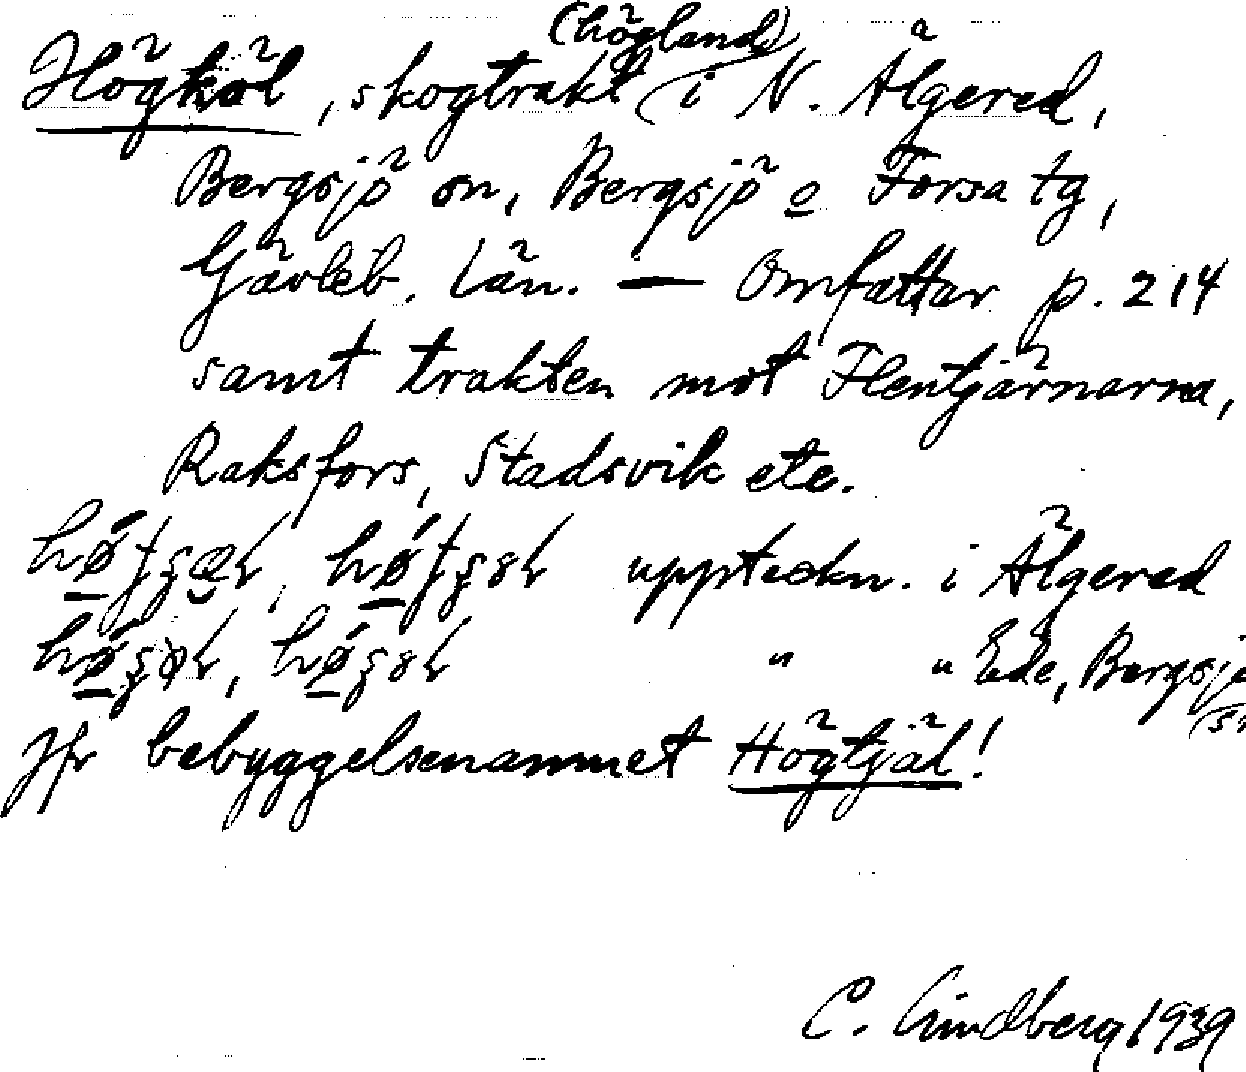 Högköl, skogtrakt (högland) i N. Älgered,
Bergsjö sn, Bergsjö o Forsa tg,
Gävleb. län. — Omfattar p. 214
samt trakten mot Flentjärnarna,
Raksfors, Stadsvik etc.
uppteckn. i Älgered
" " Ede, Bergsjö
Jfr bebyggelsenamnet Högtjäl!
C. Lindberg 1939